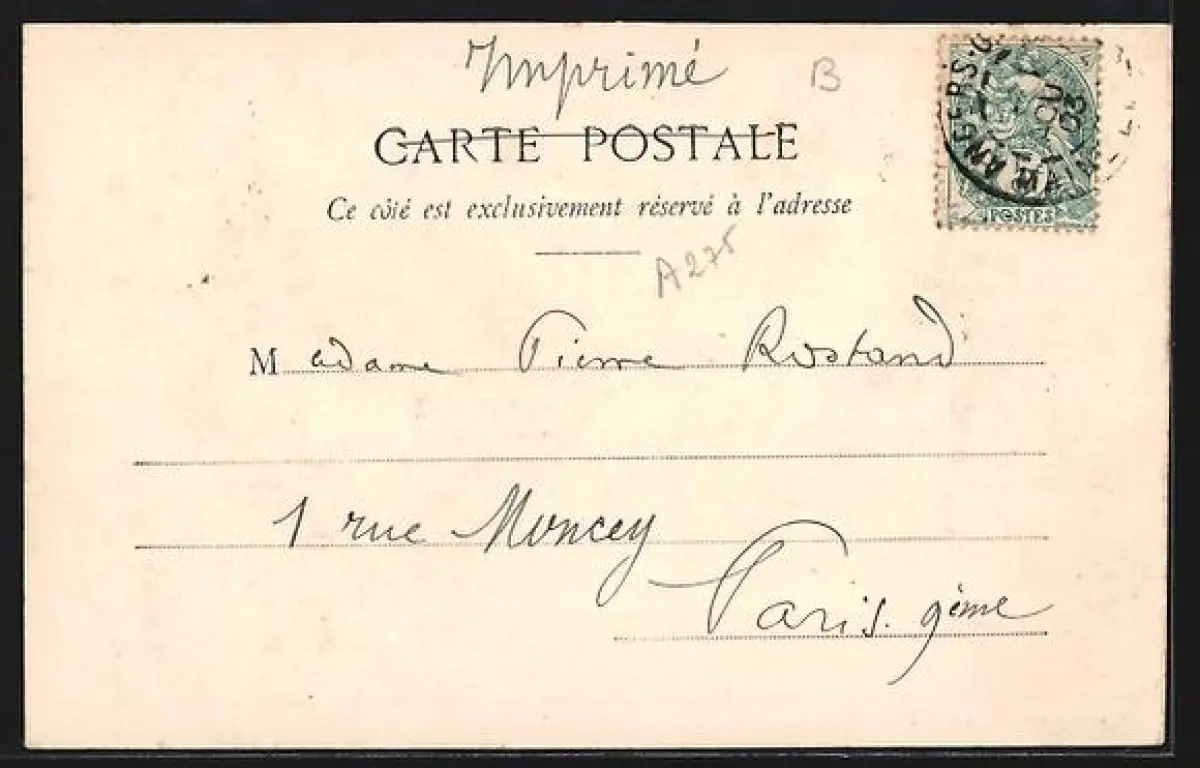 Imprimé
B
CARTE POSTALE
Ce côté est exclusivement réservé à l'adresse
A275
Madame Pierre Rostand
1 rue Moncey
Paris. 9ème
ANGERS-G
POSTES